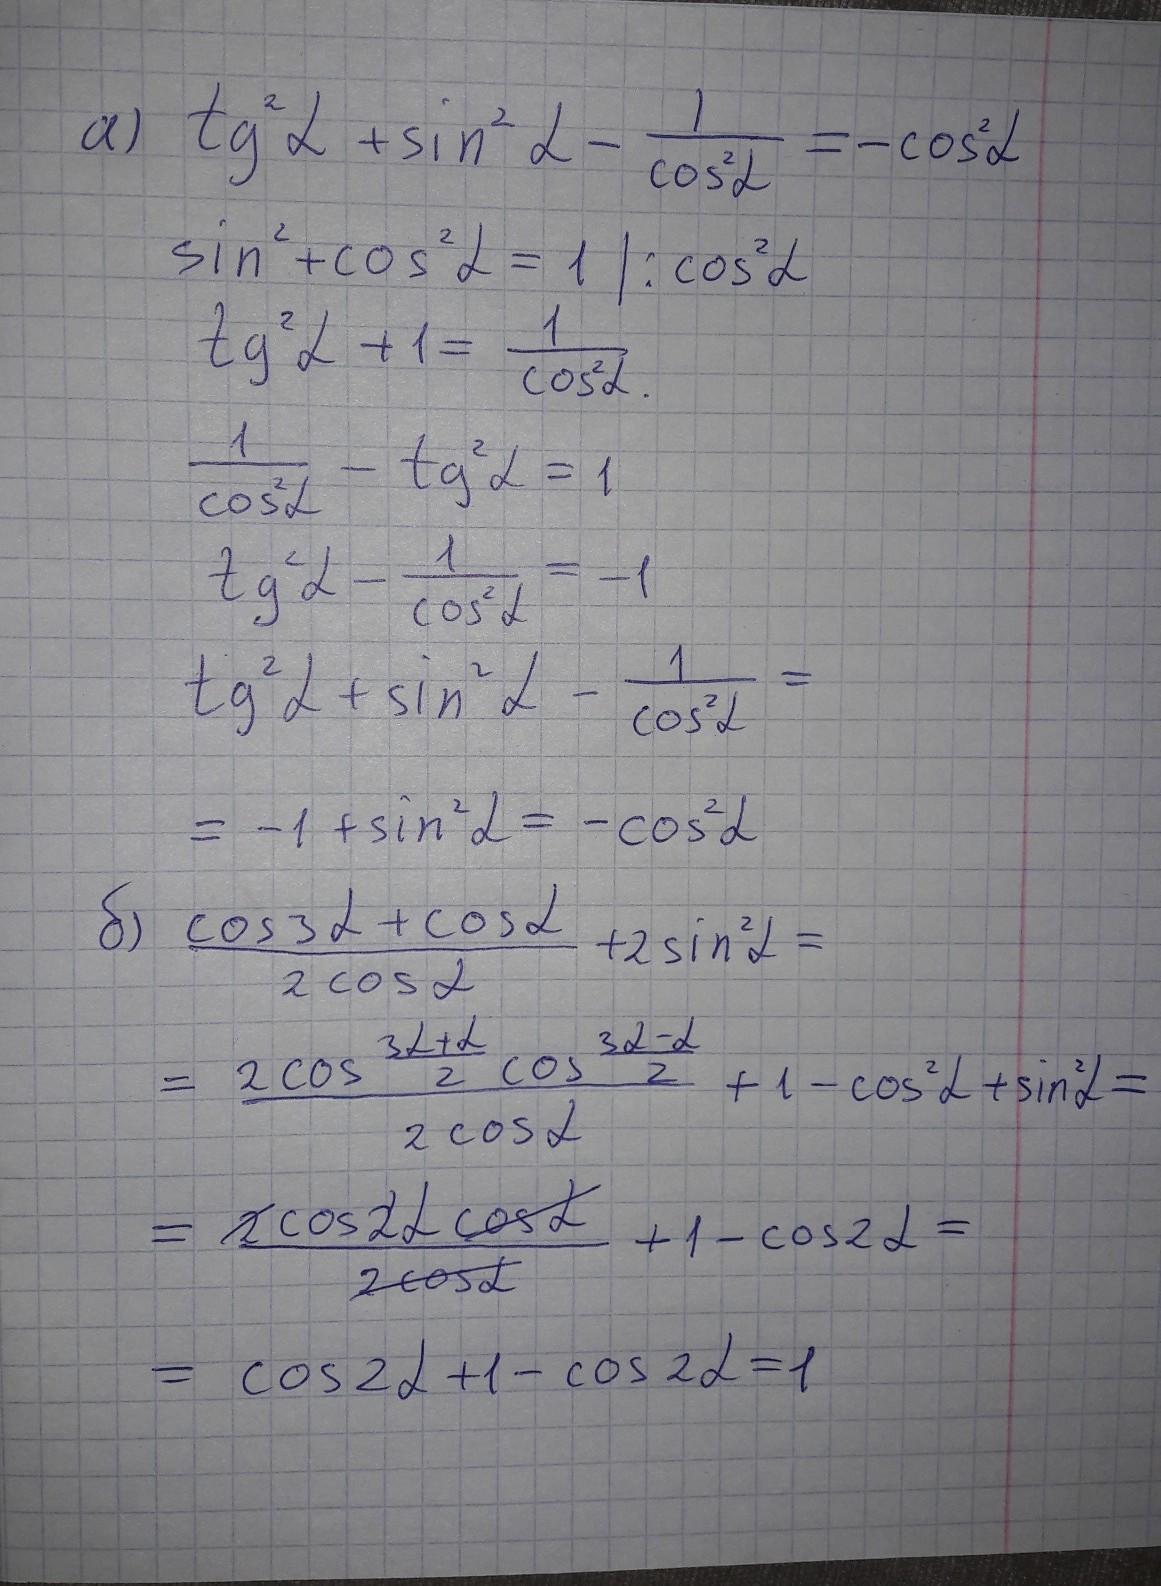 а) tg²α + sin²α - 1/cos²α = -cos²α
sin² + cos²α = 1 | : cos²α
tg²α + 1 = 1/cos²α.
1/cos²α - tg²α = 1
tg²α - 1/cos²α = -1
tg²α + sin²α - 1/cos²α =
= -1 + sin²α = -cos²α
б) (cos3α + cosα)/(2cosα) + 2sin²α =
= (2cos (3α+α)/2 cos (3α-α)/2)/(2cosα) + 1 - cos²α + sin²α =
= (2cos2α cosα)/(2cosα) + 1 - cos2α =
= cos2α + 1 - cos2α = 1